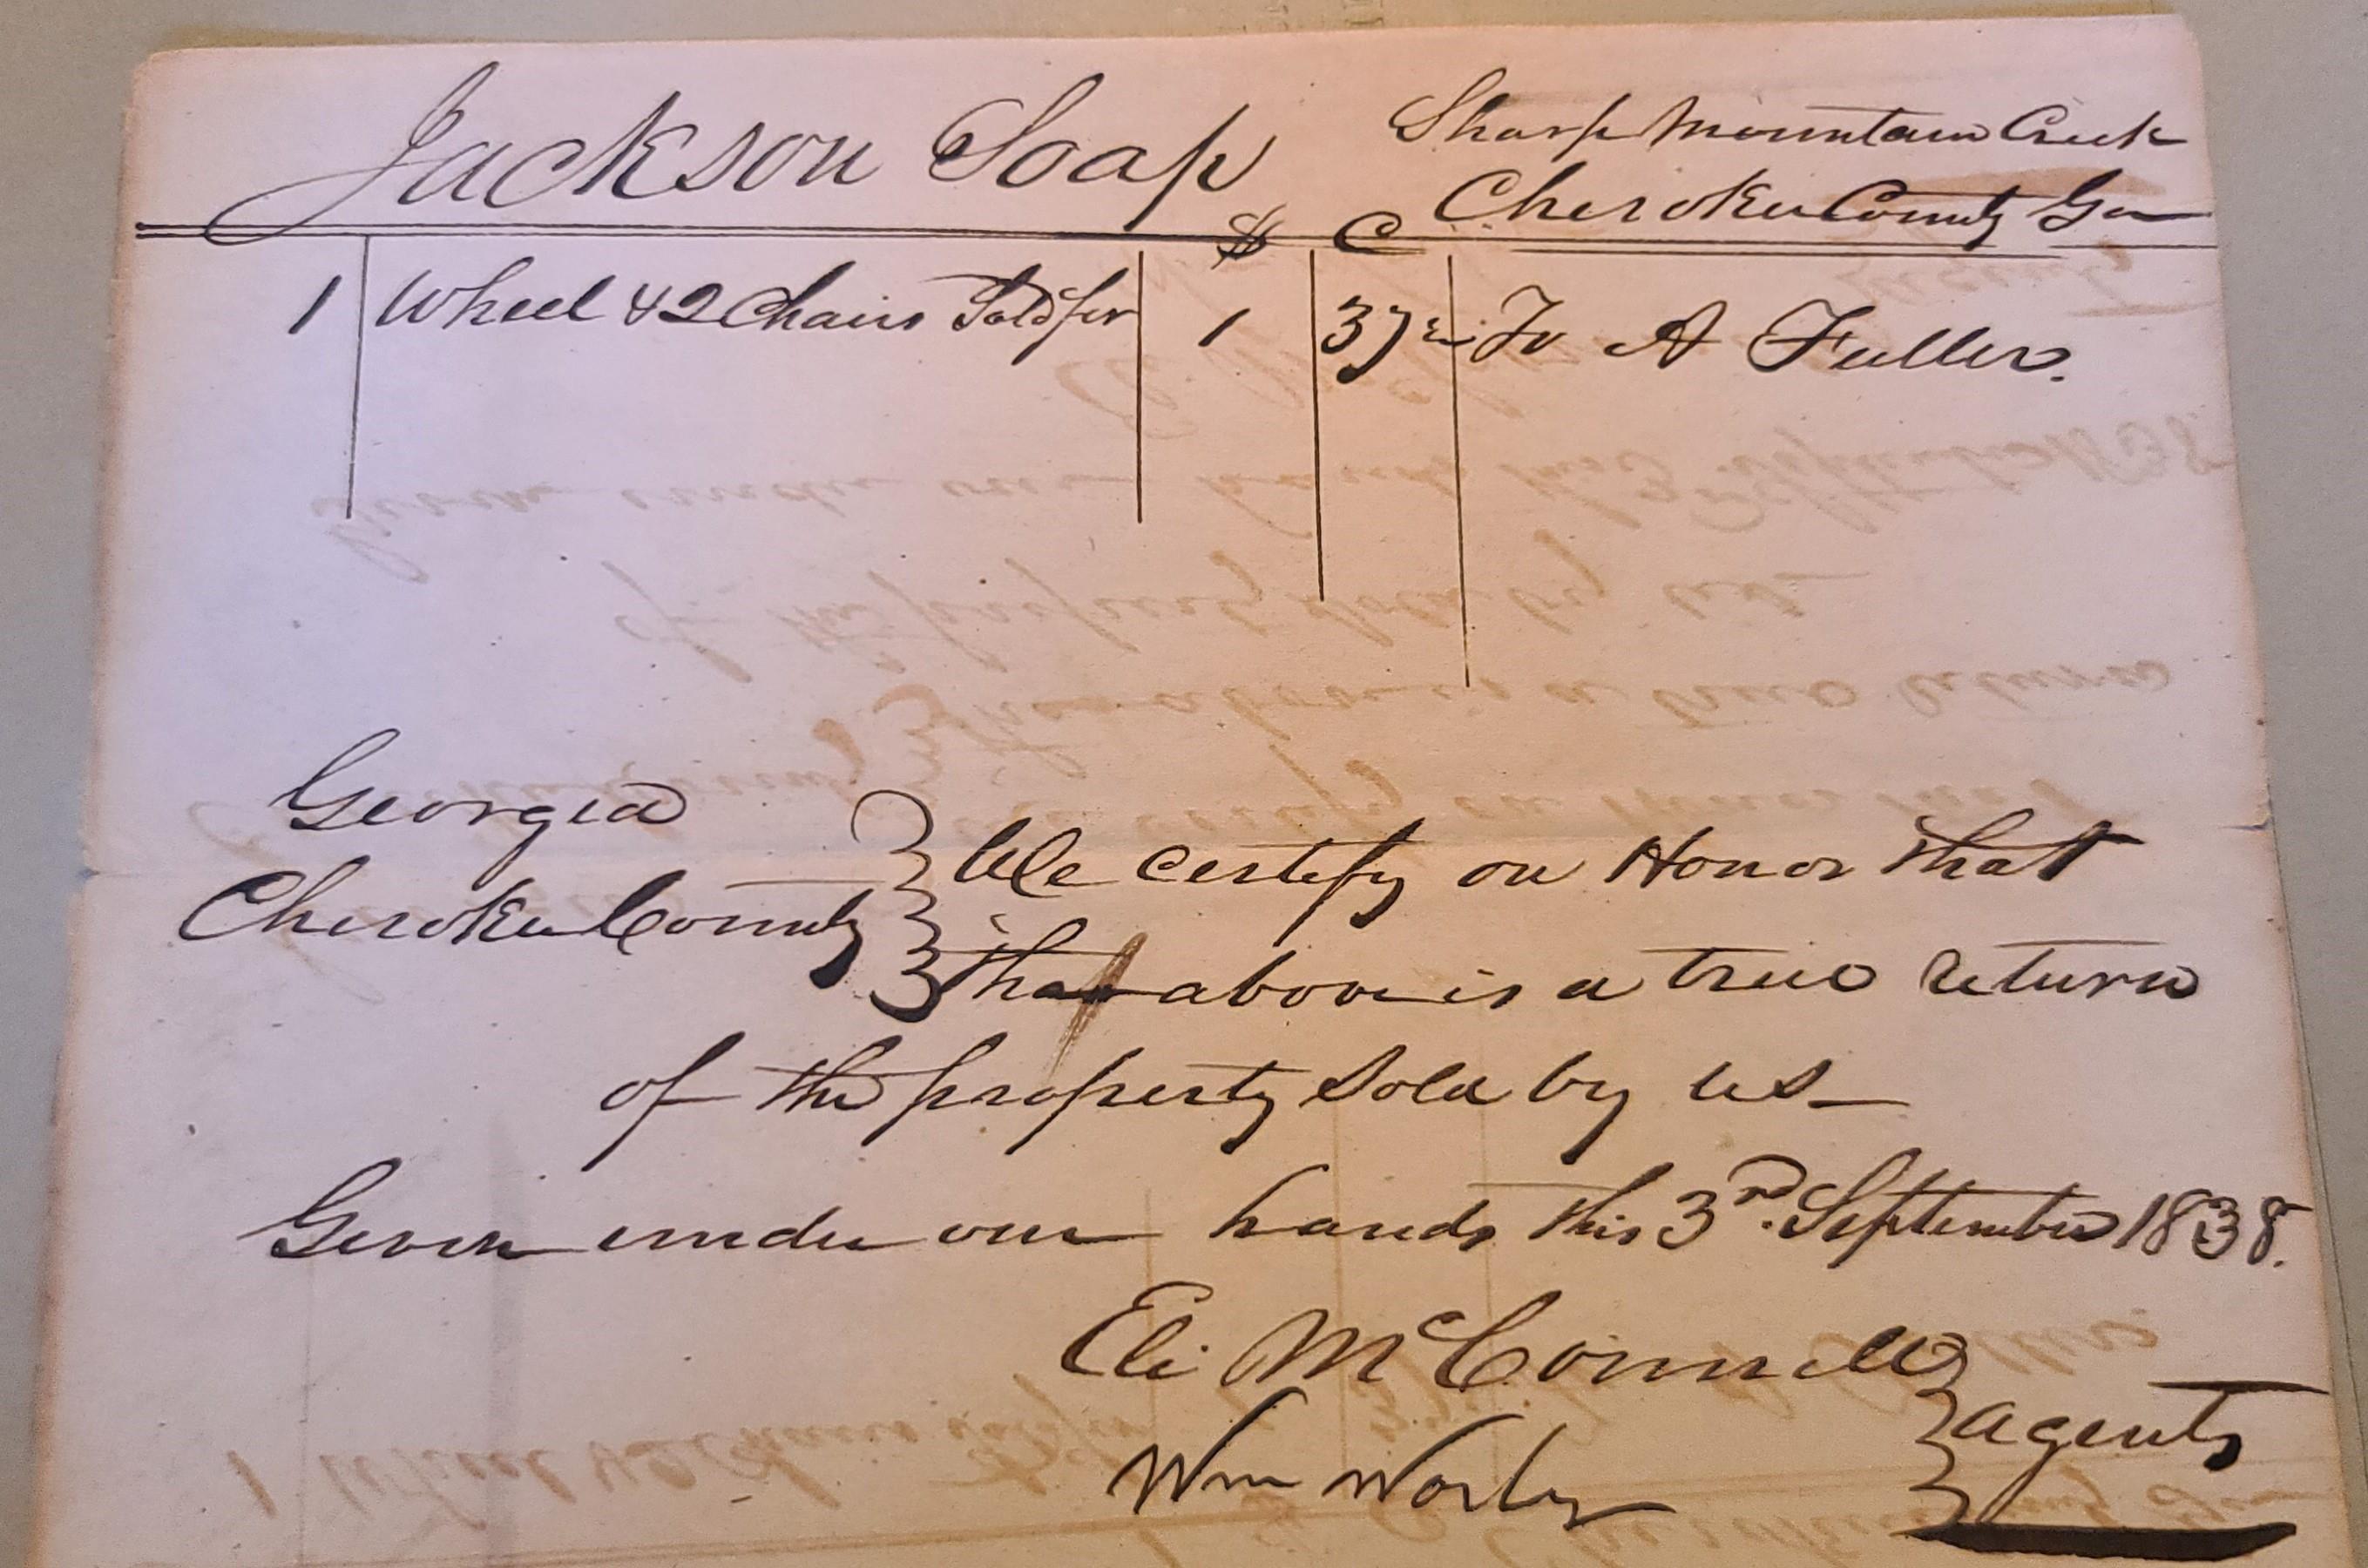 Jackson Soap
Sharp Mountain Creek
Cherokee County Ga
$ C
1 Wheel & 2 Chairs Sold for 1 37½ To A Fuller.
Georgia
Cherokee County
We certify on Honor that
that above is a true return
of the property sold by us
Given under our hands this 3rd. September 1838.
Eli McConnell
Wm Worley
agents